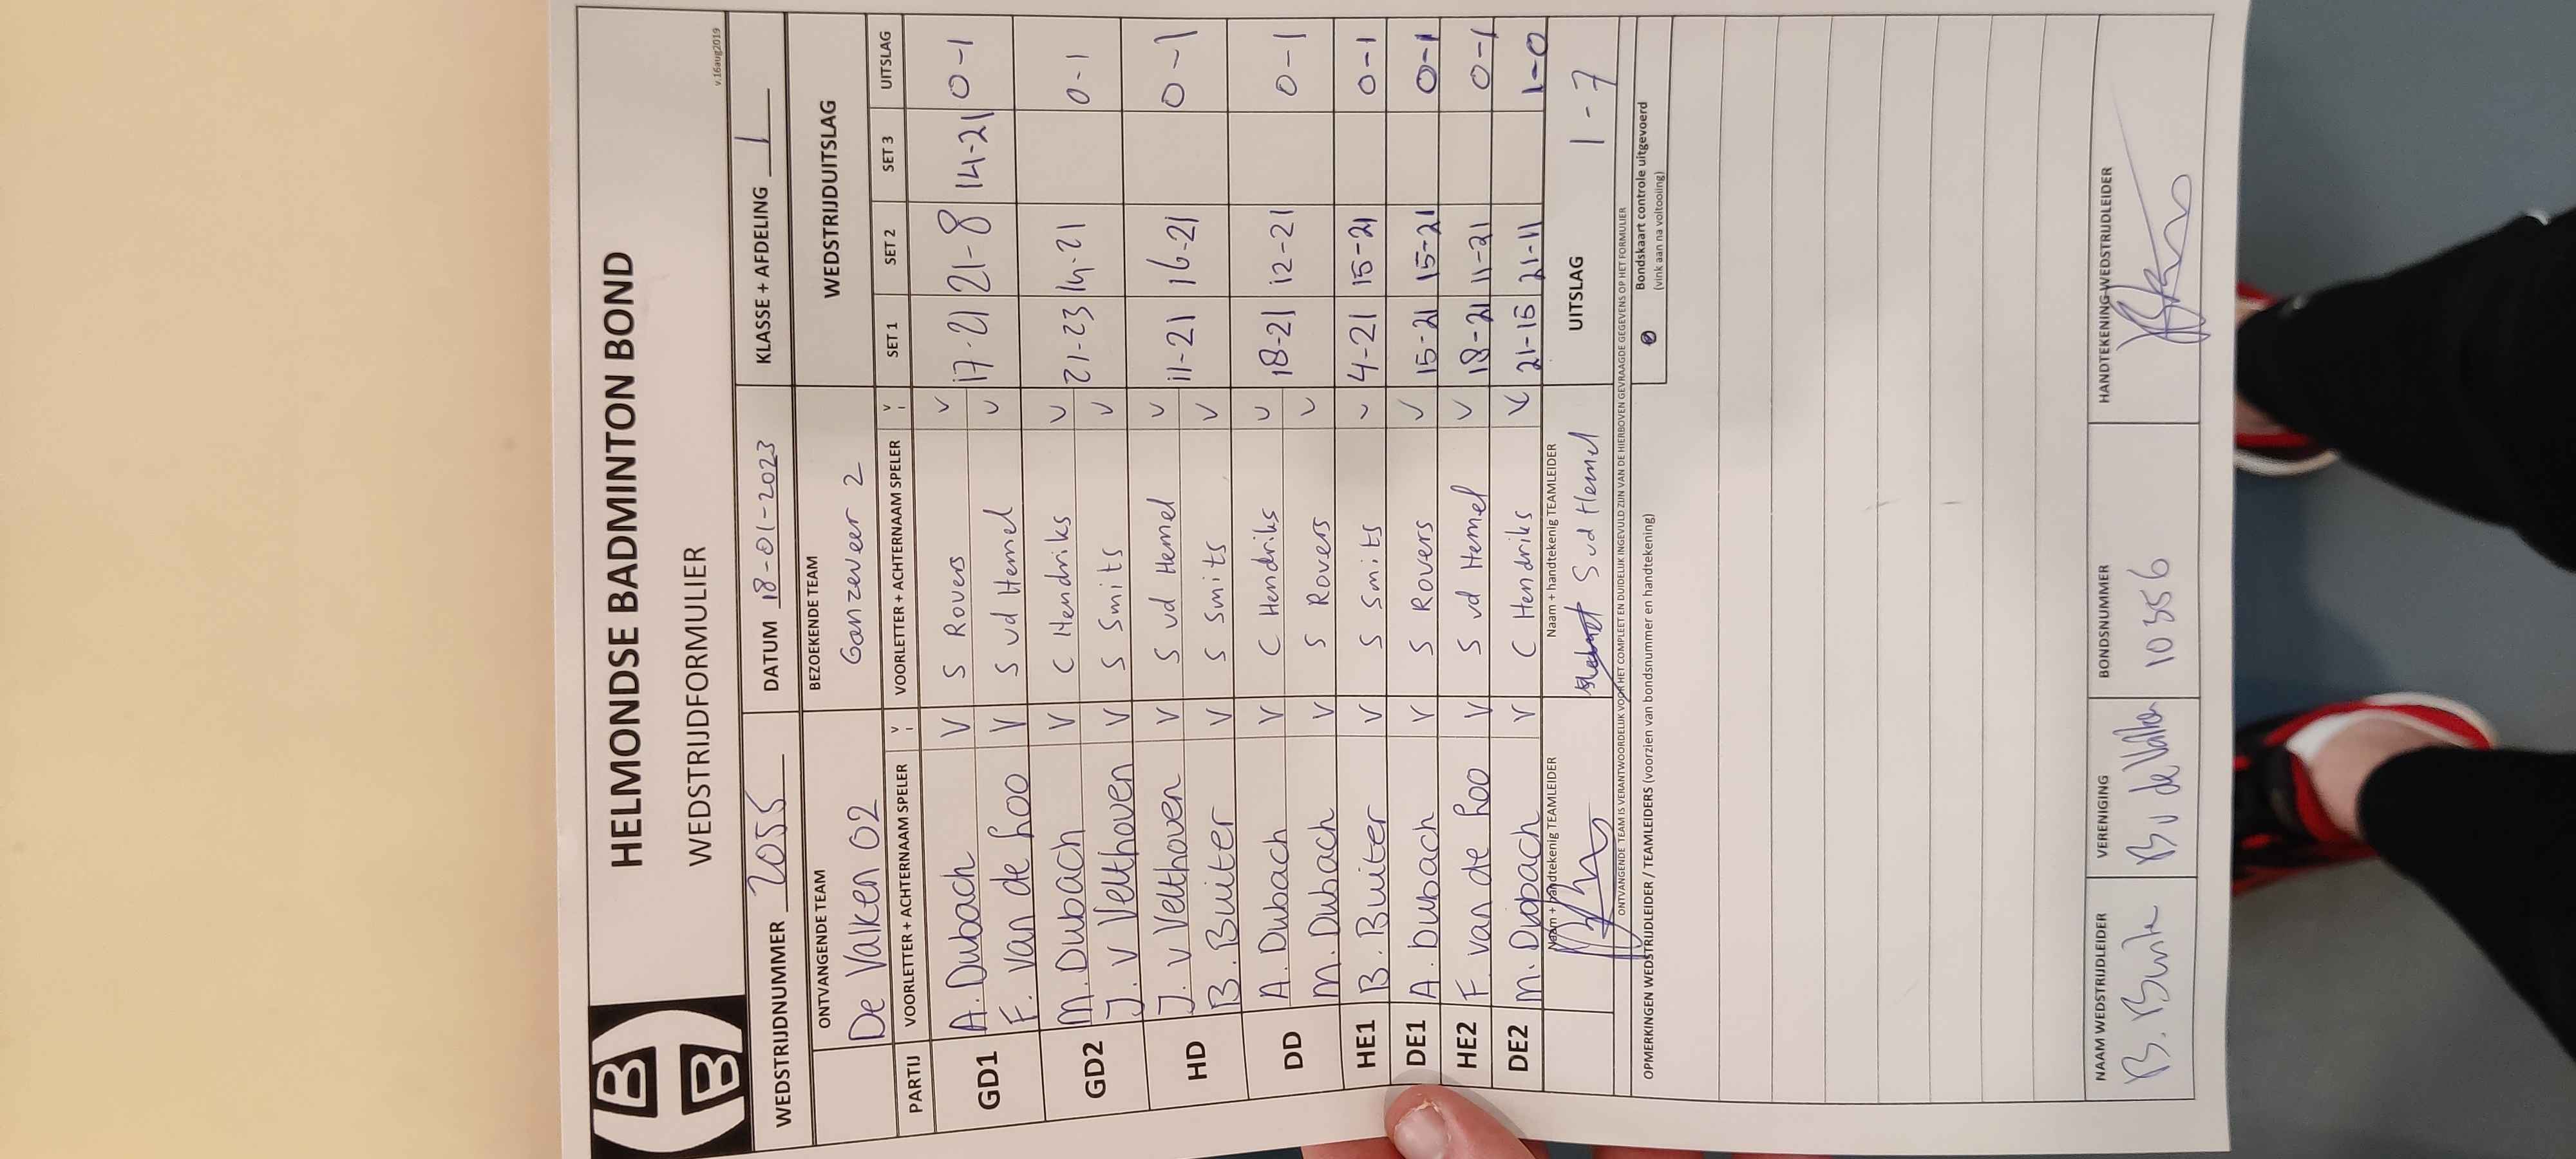 HELMONDSE BADMINTON BOND
v.16aug2019
WEDSTRIJDFORMULIER
WEDSTRIJDNUMMER 2055 DATUM 18-01-2023 KLASSE + AFDELING 1
ONTVANGENDE TEAM BEZOEKENDE TEAM WEDSTRIJDUITSLAG
De Valken 02 Ganzeveer 2
PARTIJ VOORLETTER + ACHTERNAAM SPELER V VOORLETTER + ACHTERNAAM SPELER V SET 1 SET 2 SET 3 UITSLAG
GD1 A. Dubach V S Rovers V 17-21 21-8 14-21 0-1
F. van de Loo V S vd Hemel V
GD2 M. Dubach V C Hendriks V 21-23 14-21 0-1
J. v Velthoven V S Smits V
HD J. v Velthoven V S vd Hemel V 11-21 16-21 0-1
B. Buiter V S Smits V
DD A. Dubach V C Hendriks V 18-21 12-21 0-1
M. Dubach V S Rovers V
HE1 B. Buiter V S Smits V 4-21 15-21 0-1
DE1 A. Dubach V S Rovers V 15-21 15-21 0-1
HE2 F. van de Loo V S vd Hemel V 18-21 11-21 0-1
DE2 M. Dubach V C Hendriks V 21-15 21-11 1-0
Naam + handtekenig TEAMLEIDER Naam + handtekenig TEAMLEIDER UITSLAG 1-7
S vd Hemel
ONTVANGENDE TEAM IS VERANTWOORDELIJK VOOR HET COMPLEET EN DUIDELIJK INGEVULD ZIJN VAN DE HIERBOVEN GEVRAAGDE GEGEVENS OP HET FORMULIER
OPMERKINGEN WEDSTRIJDLEIDER / TEAMLEIDERS (voorzien van bondsnummer en handtekening)
Bondskaart controle uitgevoerd
(vink aan na voltooiing)
NAAM WEDSTRIJDLEIDER VERENIGING BONDSNUMMER HANDTEKENING WEDSTRIJDLEIDER
B. Buiter BV de Valken 10356